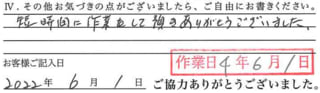 Ⅳ. その他お気づきの点がございましたら、ご自由にお書きください。
短時間に作業をして頂きありがとうございました。
お客様ご記入日
作業日 4年6月1日
2022年 6月 1日 ご協力ありがとうございました。